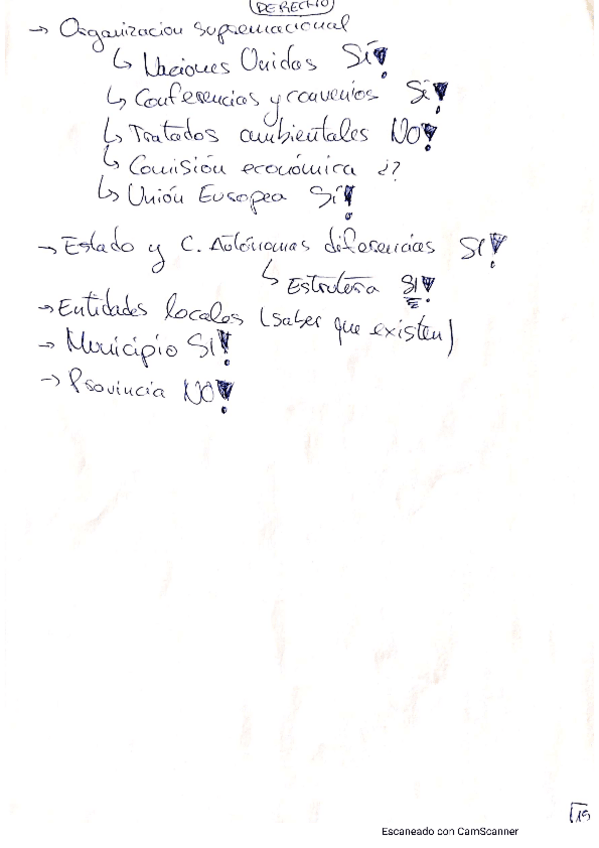 DERECHO
→ Organización supranacional
↳ Naciones Unidas Sí!
↳ Conferencias y convenios Sí!
↳ Tratados ambientales NO!
↳ Comisión económica ¿?
↳ Unión Europea Sí!
→ Estado y C. Autónomas diferencias SI!
↳ Estructura SI!
→ Entidades locales (saber que existen)
→ Municipio SI!
→ Provincia NO!
15
Escaneado con CamScanner